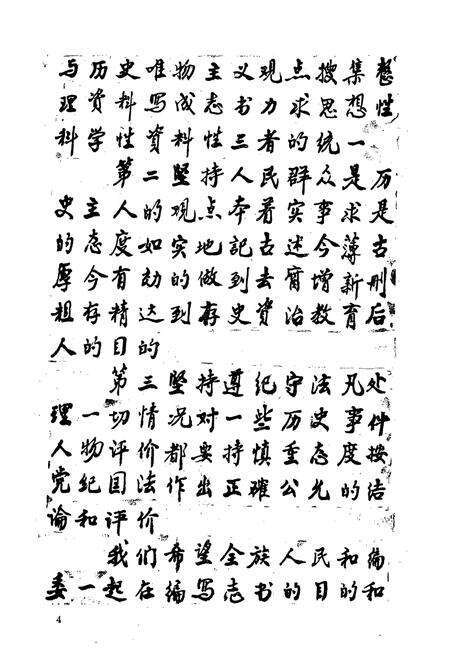 与历史唯物主义观点搜集整
理资料写成志书力求思想性
科学性资料性三者的统一
第二坚持人民群众是历
史主人的观点本着实事求是
的态度如实地記述今薄古
厚今有劾的做到去增新删
粗存精达到存史資治教育后
人的目的
第三坚持遵纪守法凡处
理一切情况对一些历史事件
人物评价都要持慎重态度按
党纪国法作出正確公允的结
论和评价
我们希望全族人民和編
委一起在编写志书的目的和
4